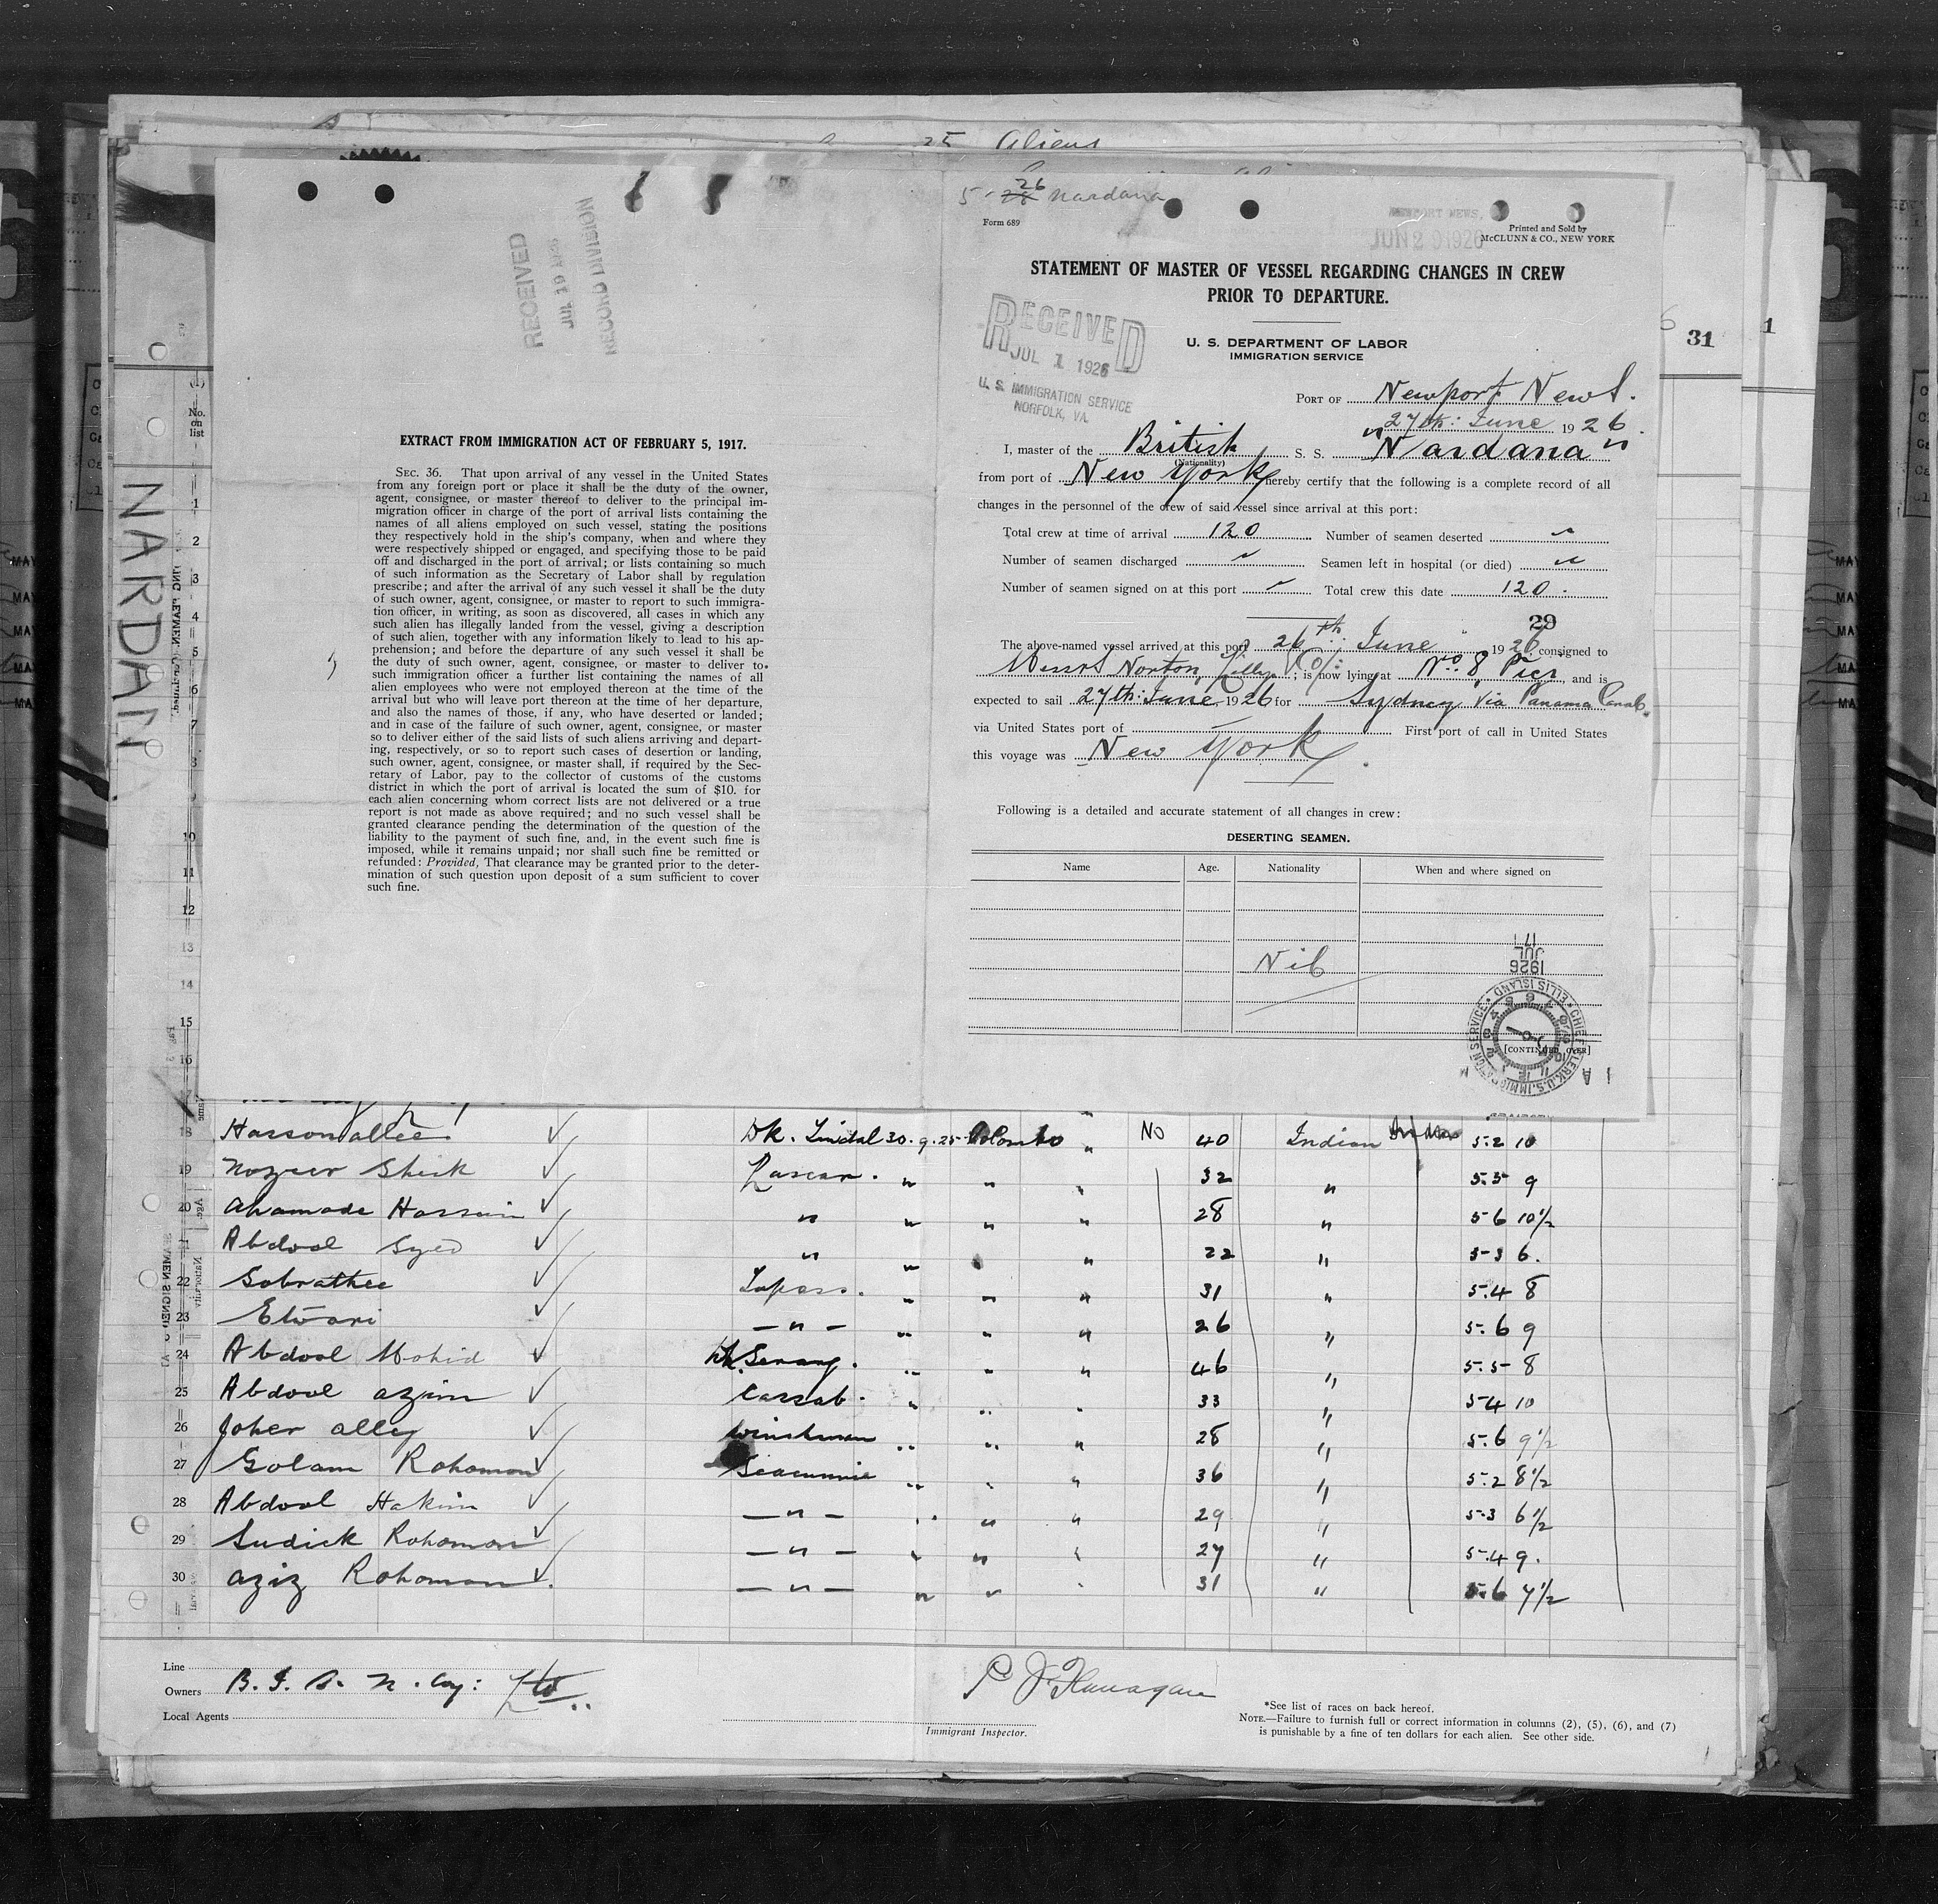 25 Aliens
RECEIVED
JUL 19
RECORD DIVISION
NARDANA
(1)
No.
on
list
EXTRACT FROM IMMIGRATION ACT OF FEBRUARY 5, 1917.
SEC. 36. That upon arrival of any vessel in the United States
from any foreign port or place it shall be the duty of the owner,
agent, consignee, or master thereof to deliver to the principal im-
migration officer in charge of the port of arrival lists containing the
names of all aliens employed on such vessel, stating the positions
they respectively hold in the ship's company, when and where they
were respectively shipped or engaged, and specifying those to be paid
off and discharged in the port of arrival; or lists containing so much
of such information as the Secretary of Labor shall by regulation
prescribe; and after the arrival of any such vessel it shall be the duty
of such owner, agent, consignee, or master to report to such immigra-
tion officer, in writing, as soon as discovered, all cases in which any
such alien has illegally landed from the vessel, giving a description
of such alien, together with any information likely to lead to his ap-
prehension; and before the departure of any such vessel it shall be
the duty of such owner, agent, consignee, or master to deliver to
such immigration officer a further list containing the names of all
alien employees who were not employed thereon at the time of the
arrival but who will leave port thereon at the time of her departure,
and also the names of those, if any, who have deserted or landed;
and in case of the failure of such owner, agent, consignee, or master
so to deliver either of the said lists of such aliens arriving and depart-
ing, respectively, or so to report such cases of desertion or landing,
such owner, agent, consignee, or master shall, if required by the Sec-
retary of Labor, pay to the collector of customs of the customs
district in which the port of arrival is located the sum of $10. for
each alien concerning whom correct lists are not delivered or a true
report is not made as above required; and no such vessel shall be
granted clearance pending the determination of the question of the
liability to the payment of such fine, and, in the event such fine is
imposed, while it remains unpaid; nor shall such fine be remitted or
refunded: Provided, That clearance may be granted prior to the deter-
mination of such question upon deposit of a sum sufficient to cover
such fine.
26
Nardana
Form 689
NEWPORT NEWS,
JUN 29 1926
Printed and Sold by
McCLUNN & CO., NEW YORK
STATEMENT OF MASTER OF VESSEL REGARDING CHANGES IN CREW
PRIOR TO DEPARTURE.
RECEIVED
JUL 1 1926
U. S. IMMIGRATION SERVICE
NORFOLK, VA.
U. S. DEPARTMENT OF LABOR
IMMIGRATION SERVICE
31
1
PORT OF Newport News.
27th: June 1926.
I, master of the British S. S. "Nardana"
(Nationality)
from port of New York hereby certify that the following is a complete record of all
changes in the personnel of the crew of said vessel since arrival at this port:
Total crew at time of arrival 120 Number of seamen deserted "
Number of seamen discharged " Seamen left in hospital (or died) "
Number of seamen signed on at this port " Total crew this date 120.
29
The above-named vessel arrived at this port 26th: June 1926, consigned to
Messrs Norton, Lilly & Co/: ; is now lying at No: 8, Pier, and is
expected to sail 27th: June 1926 for Sydney Via Panama Canal.
via United States port of First port of call in United States
this voyage was New York.
Following is a detailed and accurate statement of all changes in crew:
DESERTING SEAMEN.
Name Age. Nationality When and where signed on
Nil
17
JUL
1926
CHIEF CLERK, U.S. IMMIGRATION SERVICE
ELLIS ISLAND
[CONTINUED OVER]
18 Hassomallee Dk. Tindal 30.9.25 Colombo " No 40 Indian Indian 5.2 10
19 Nozeer Sheik Lascar. " " " 32 " 5.5 9
20 Ahamade Hossein " " " " 28 " 5 6 10½
21 Abdool Syed " " " " 22 " 5-3 6.
22 Sobrathee Topass. " " " 31 " 5.4 8
23 Etwari —"— " " " 26 " 5.6 9
24 Abdool Mohid Wh. Serang. " " " 46 " 5.5 8
25 Abdool azim Cassab. " " " 33 " 5-4 10
26 Joher alley Winchman " " " 28 " 5.6 9½
27 Golam Rohomon Seacunnie " " " 36 " 5-2 8½
28 Abdool Hakim —"— " " " 29 " 5-3 6½
29 Sudick Rohomon —"— " " " 27 " 5.4 9.
30 aziz Rohoman. —"— " " " 31 " 5.6 7½
Line
Owners B. I. S. N. Coy: Ltd..
Local Agents
P J Flanagan
Immigrant Inspector.
*See list of races on back hereof.
NOTE.—Failure to furnish full or correct information in columns (2), (5), (6), and (7)
is punishable by a fine of ten dollars for each alien. See other side.